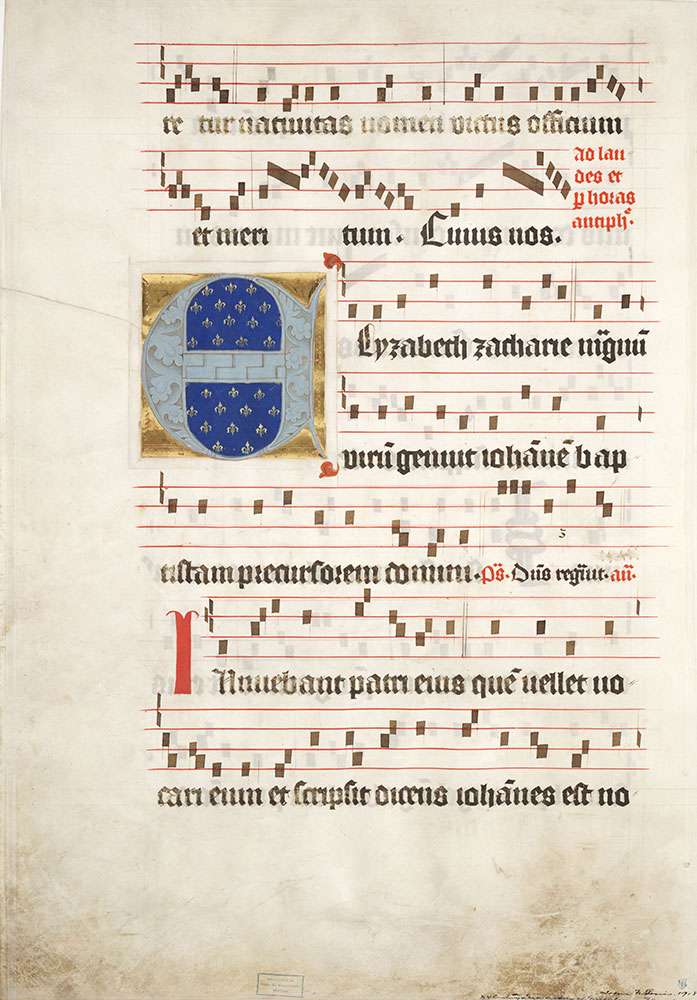 re tur natiuitas nomen virtus officium
et meri tum. Cuius nos.
ad lau
des et
p horas
antiph.
Elyzabeth zacharie magnū
virū genuit iohānē bap
tistam precursorem domini. ps. Dn̄s regnuit. an.
Innuebant patri eius quē uellet uo
cari eum et scripsit dicens iohānes est no